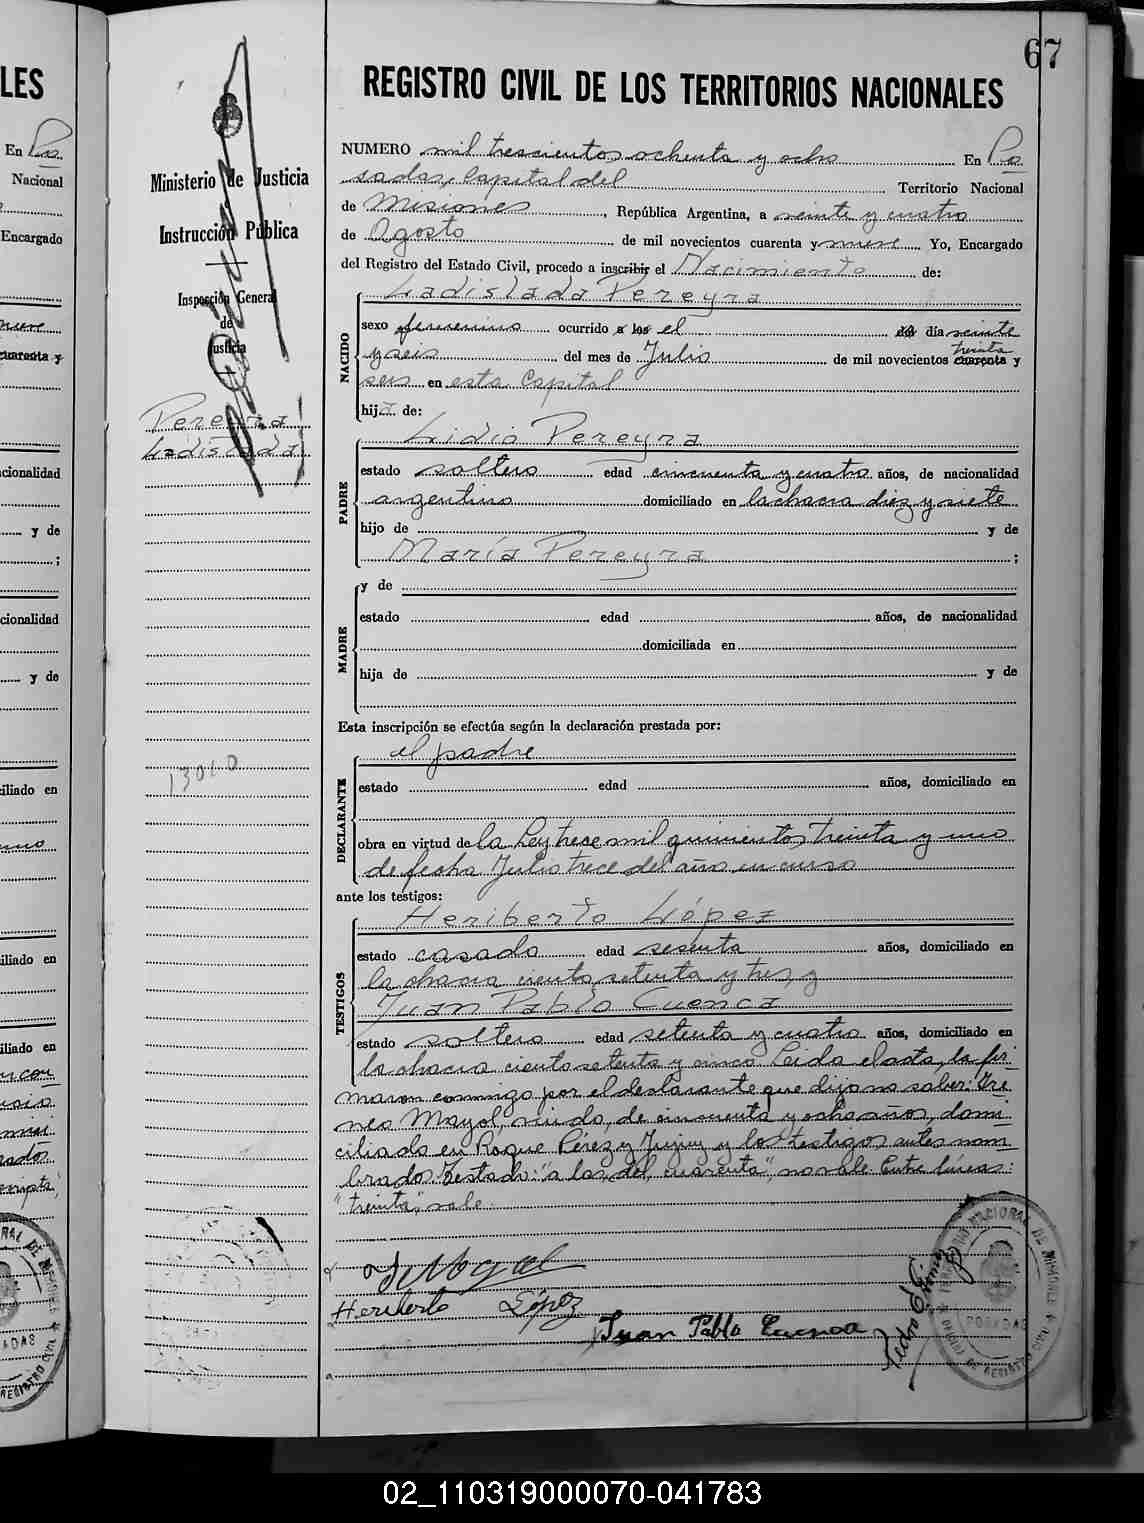 67
REGISTRO CIVIL DE LOS TERRITORIOS NACIONALES
NUMERO mil trescientos ochenta y ocho En Po
sadas, Capital del Territorio Nacional
de Misiones, República Argentina, a veinte y cuatro
de Agosto de mil novecientos cuarenta y nueve Yo, Encargado
del Registro del Estado Civil, procedo a inscribir el Nacimiento de:
NACIDO
Ladislada Pereyra
sexo femenino ocurrido a los el del día veinte
y seis del mes de Julio de mil novecientos cuarenta treinta y
seis en esta Capital
hija de:
PADRE
Lidio Pereyra
estado soltero edad cincuenta y cuatro años, de nacionalidad
argentino domiciliado en la chacra diez y siete
hijo de y de
María Pereyra ;
MADRE
y de
estado edad años, de nacionalidad
domiciliada en
hija de y de
Esta inscripción se efectúa según la declaración prestada por:
DECLARANTE
el padre
estado edad años, domiciliado en
obra en virtud de la Ley trece mil quinientos treinta y uno
de fecha Julio trece del año en curso
ante los testigos:
TESTIGOS
Heriberto López
estado casado edad sesenta años, domiciliado en
la chacra ciento setenta y tres, y
Juan Pablo Cuenca
estado soltero edad setenta y cuatro años, domiciliado en
la chacra ciento setenta y cinco Leida el acta, la fir
maron conmigo por el declarante que dijo no saber: Ire
neo Mayol, viudo, de cincuenta y ocho años, domi
ciliado en Roque Pérez y Jujuy y los testigos antes nom
brados. Testado: "a los, del, cuarenta", no vale. Entre líneas:
"treinta", vale.
Heriberto López
Juan Pablo Cuenca
Ministerio de Justicia
Instrucción Pública
Inspección General
de
Justicia
Pereyra
Ladislada
13010
LES
En Po
Nacional
Encargado
nueve
cuarenta y
cionalidad
y de
;
cionalidad
y de
iliado en
iliado en
iliado en
POSADAS
02_110319000070-041783